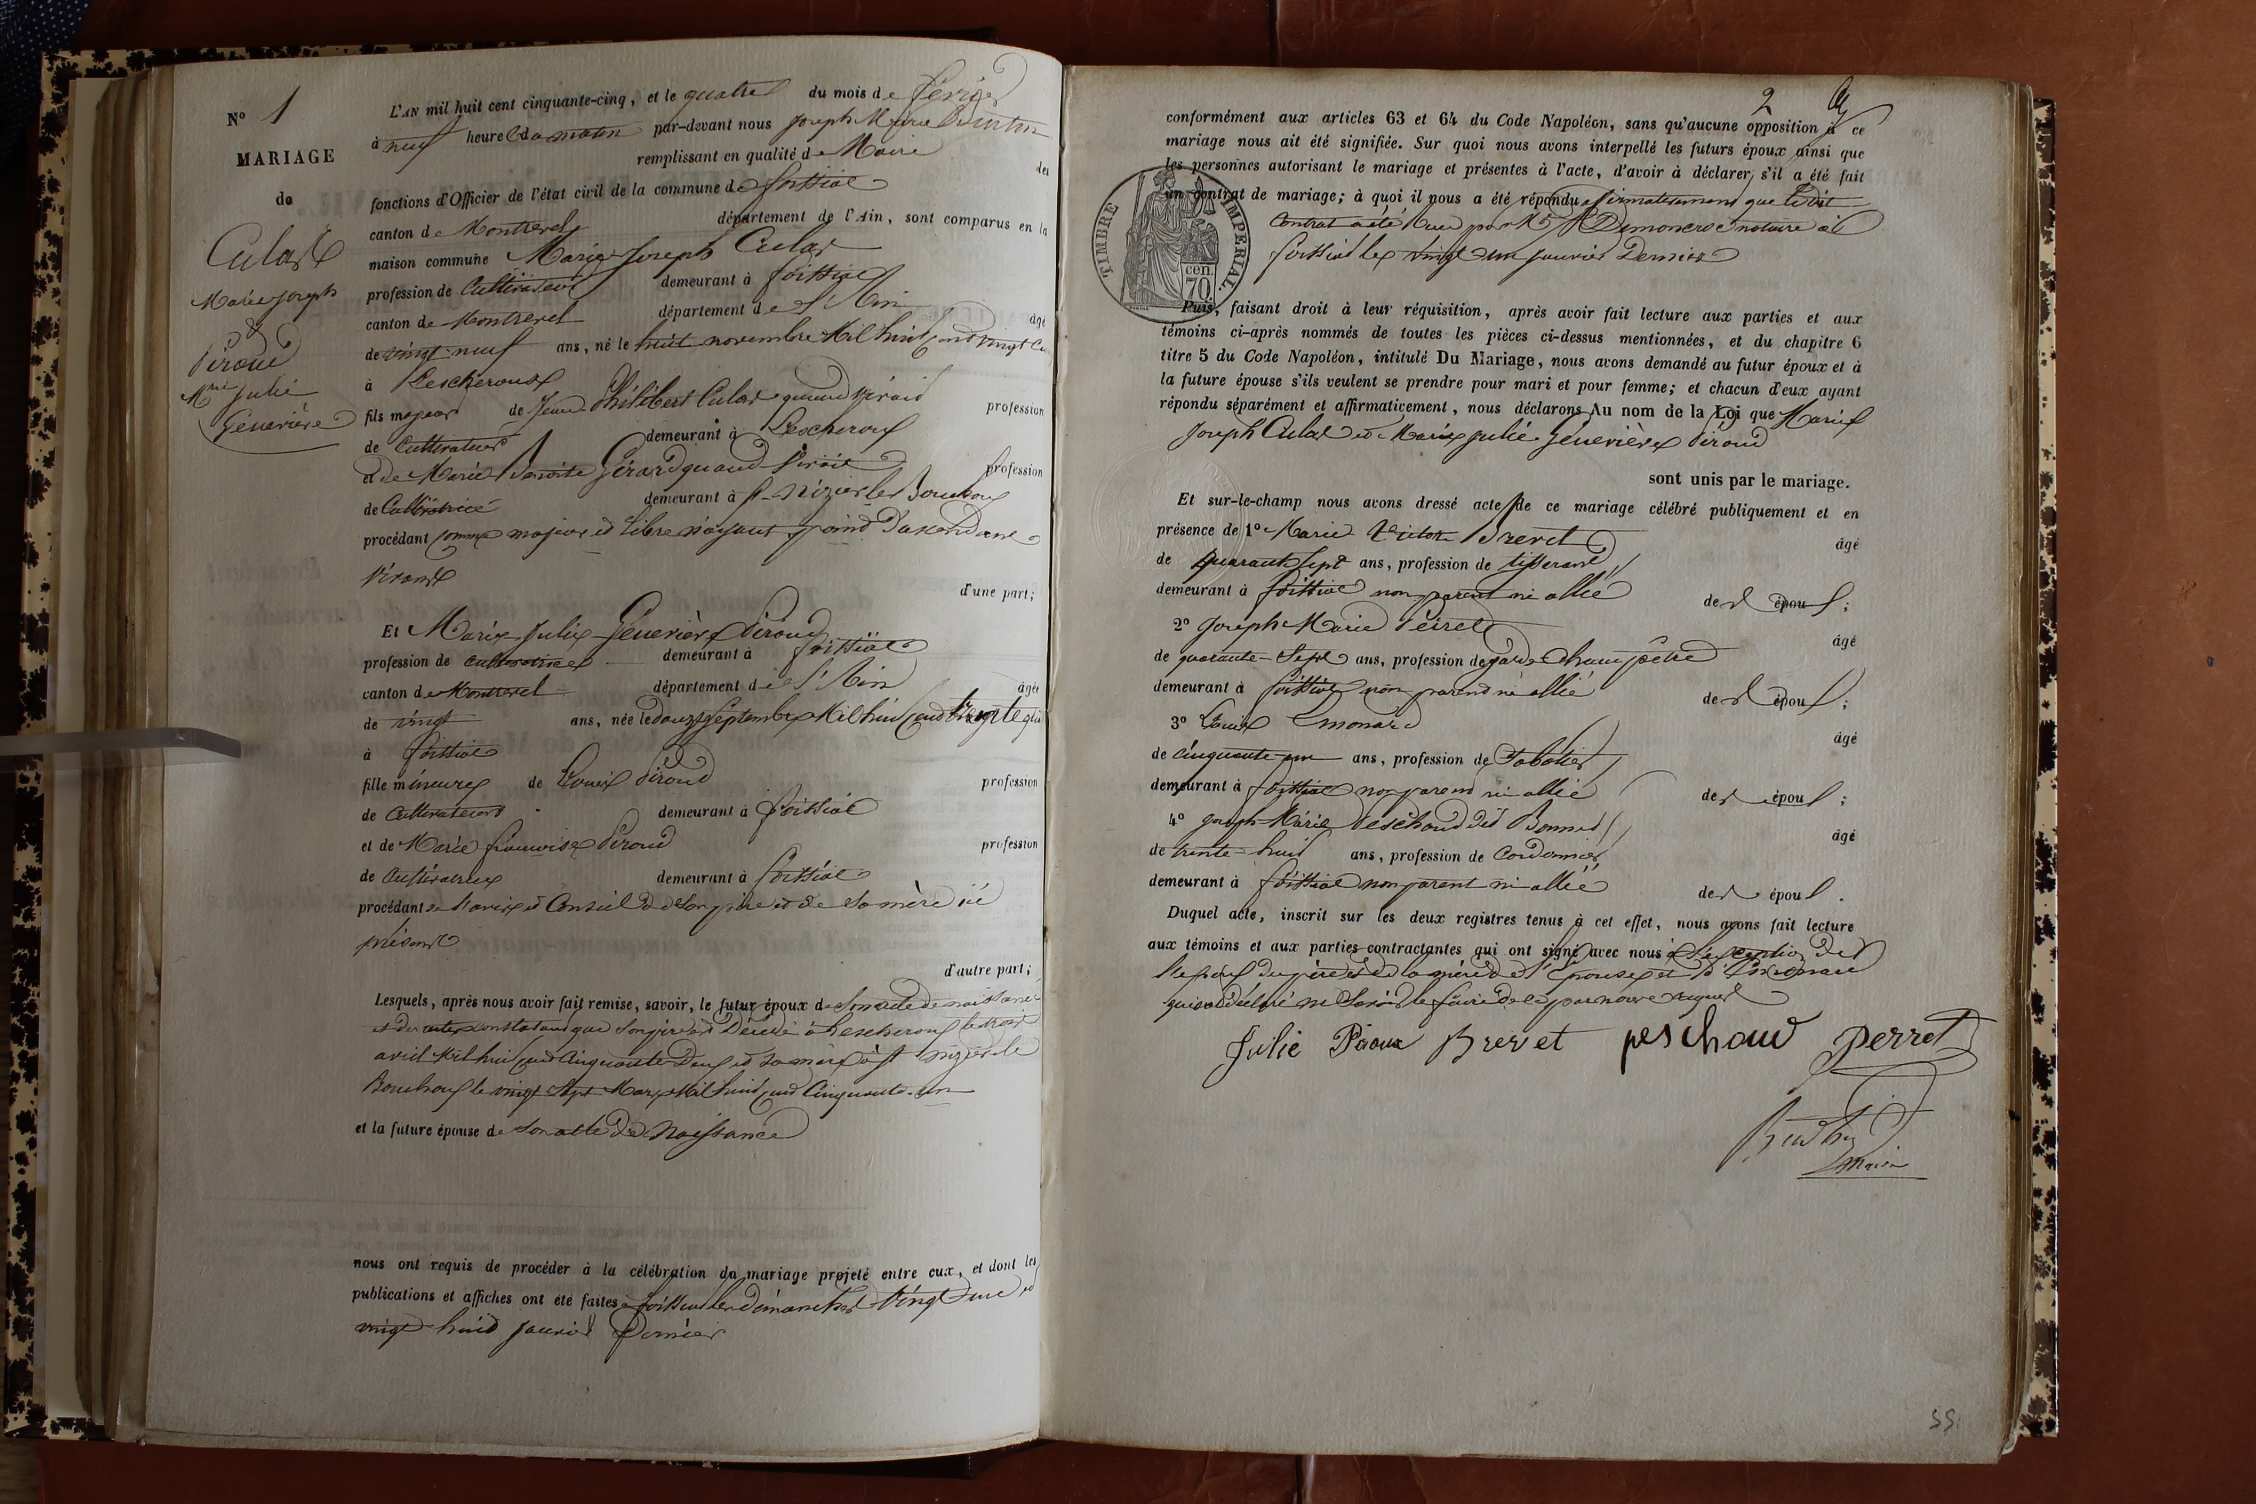 N° 1
MARIAGE
de
Culas
Marie Joseph
&
Piroud
Mie Julie
Genevière
L'AN mil huit cent cinquante-cinq, et le quatre du mois de février
à neuf heures du matin par-devant nous Joseph Marie
remplissant en qualité de Maire des
fonctions d'Officier de l'état civil de la commune de foissiat
canton de Montrevel département de l'Ain, sont comparus en la
maison commune Marie Joseph Culas
profession de Cultivateur demeurant à foissiat
canton de Montrevel département de L'Ain âgé
de vingt neuf ans, né le huit novembre Mil huit cent vingt
à Lescheroux
fils majeur de Jean Philibert Culas quand vivait profession
de Cultivateur demeurant à Lescheroux
et de Marie Benoite Gérard quand vivait profession
de Cultivatrice demeurant à St Nizier le Bouchoux
procédant comme majeur et libre n'ayant point d'ascendant
vivant
d'une part;
Et Marie Julie Genevière Piroud
profession de cultivatrice demeurant à foissiat
canton de Montrevel département de L'Ain âgée
de vingt ans, née le douze Septembre Mil huit cent trente
à foissiat
fille mineure de Louis Piroud profession
de Cultivateur demeurant à foissiat
et de Marie françoise Piroud profession
de Cultivatrice demeurant à foissiat
procédant de l'avis et Conseil de Son père et de Sa mère ici
présent
d'autre part;
Lesquels, après nous avoir fait remise, savoir, le futur époux de Son acte de naissance
et des actes constatant que Son père est Décédé à Lescheroux le trois
avril Mil huit cent Cinquante Deux et Sa mère à St Nizier le
Bouchoux le vingt Sept Mars Mil huit cent Cinquante un
et la future épouse de Son acte de Naissance
nous ont requis de procéder à la célébration du mariage projeté entre eux, et dont les
publications et affiches ont été faites à foissiat les dimanches vingt une et
vingt huit janvier Dernier
2
conformément aux articles 63 et 64 du Code Napoléon, sans qu'aucune opposition à ce
mariage nous ait été signifiée. Sur quoi nous avons interpellé les futurs époux ainsi que
les personnes autorisant le mariage et présentes à l'acte, d'avoir à déclarer s'il a été fait
un contrat de mariage; à quoi il nous a été répondu affirmativement que ledit
Contrat a été Reçu par Me notaire à
foissiat le vingt un janvier Dernier
TIMBRE IMPERIAL.
cen.
70.
Puis, faisant droit à leur réquisition, après avoir fait lecture aux parties et aux
témoins ci-après nommés de toutes les pièces ci-dessus mentionnées, et du chapitre 6
titre 5 du Code Napoléon, intitulé Du Mariage, nous avons demandé au futur époux et à
la future épouse s'ils veulent se prendre pour mari et pour femme; et chacun d'eux ayant
répondu séparément et affirmativement, nous déclarons Au nom de la Loi que Marie
Joseph Culas et Marie Julie Genevière Piroud
sont unis par le mariage.
Et sur-le-champ nous avons dressé acte de ce mariage célébré publiquement et en
présence de 1° Marie Victor Brevet âgé
de quarante Sept ans, profession de tisserand
demeurant à foissiat non parent ni allié des époux;
2° Joseph Marie Peiret âgé
de quarante-Sept ans, profession de garde Champêtre
demeurant à foissiat non parent ni allié des époux;
3° Louis Emonard âgé
de Cinquante un ans, profession de Sabotier
demeurant à foissiat non parent ni allié des époux;
4° Joseph Marie Peschoud dit Bonnet âgé
de trente-huit ans, profession de Cordonnier
demeurant à foissiat non parent ni allié des époux.
Duquel acte, inscrit sur les deux registres tenus à cet effet, nous avons fait lecture
aux témoins et aux parties contractantes qui ont signé avec nous à l'exception de
l'époux du père et de la mère de l'Epouse et d'Emonard
qui ont déclaré ne Savoir le faire de ce par nous requis
Julie Piroux Brevet peschoud perret
Maire
55